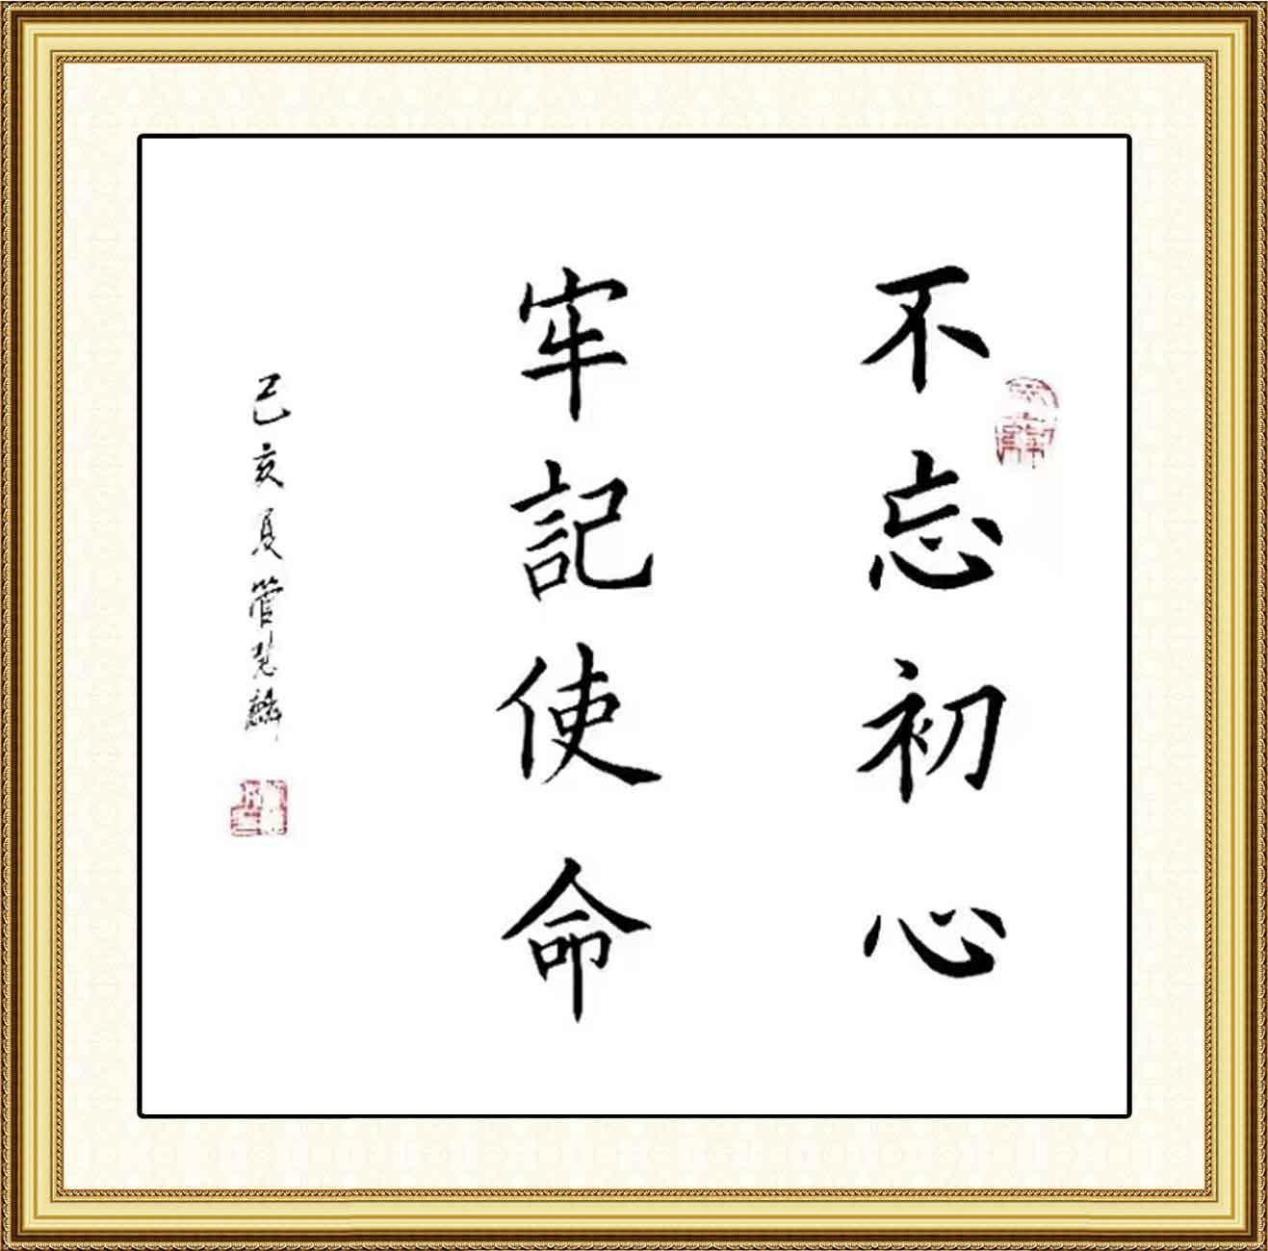 不忘初心
牢記使命
己亥夏管慧麟